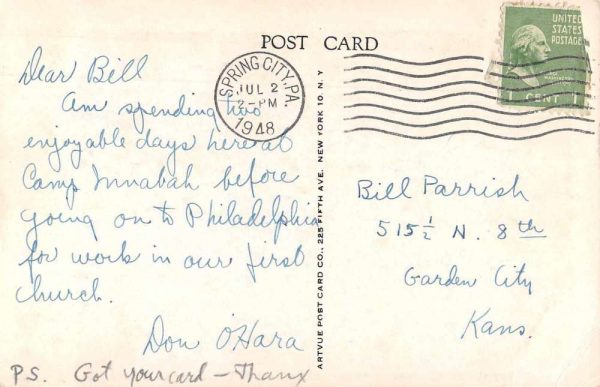 POST CARD
Dear Bill
Am spending two
enjoyable days here at
Camp Innabah before
going on to Philadelphia
for work in our first
church.
Don O'Hara
P.S. Got your card - Thanx
SPRING CITY, PA.
JUL 2
2-PM
1948
ARTVUE POST CARD CO., 225 FIFTH AVE. NEW YORK 10, N. Y.
UNITED
STATES
POSTAGE
1 CENT 1
Bill Parrish
515½ N. 8th
Garden City
Kans.